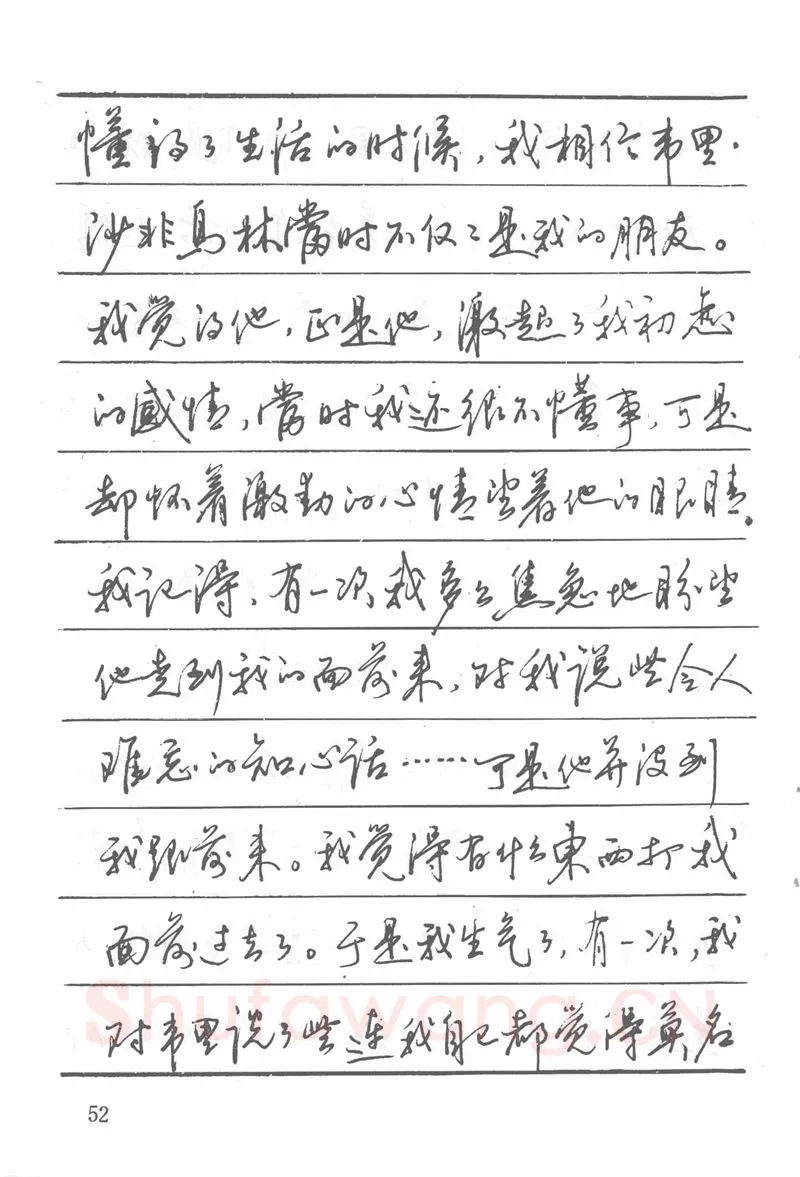 懂得了生活的时候，我相信韦里·
沙非乌林当时不仅仅是我的朋友。
我觉得他，正是他，激起了我初恋
的感情，当时我还很不懂事，可是
却怀着激动的心情望着他的眼睛。
我记得，有一次，我多么焦急地盼望
他走到我的面前来，对我说些令人
难忘的知心话……可是他并没到
我跟前来。我觉得有什么东西打我
面前过去了。于是我生气了，有一次，我
对韦里说了些连我自己都觉得莫名
Shufawang.CN
52